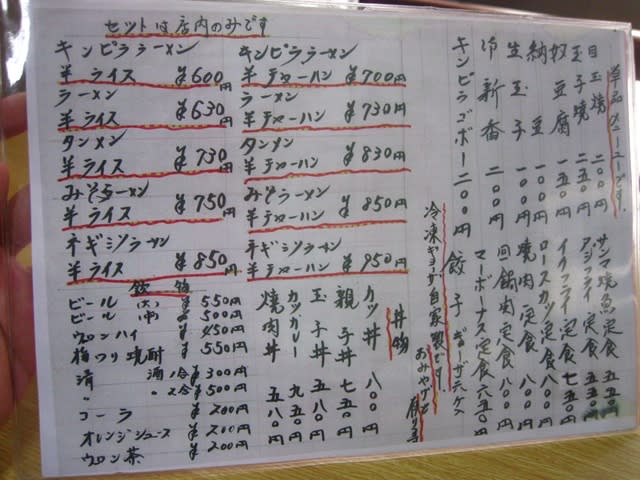 セットは店内のみです
キンピララーメン
半ライス ¥600円
ラーメン
半ライス ¥630
タンメン
半ライス ¥730
みそラーメン
半ライス ¥750
ネギミソラーメン
半ライス ¥850円
キンピララーメン
半チャーハン ¥700円
ラーメン
半チャーハン ¥730円
タンメン
半チャーハン ¥830円
みそラーメン
半チャーハン ¥850円
ネギミソラーメン
半チャーハン ¥950円
ビール (大) ¥550円
ビール (中) ¥500円
ウーロンハイ ¥450円
梅ワリ焼酎 ¥550円
清酒 1合 ¥300円
〃 〃 2合 ¥500円
コーラ ¥200円
オレンジジュース ¥200円
ウーロン茶 ¥200円
単品メニューです。
目玉焼 二〇〇円
玉子焼 一五〇円
奴豆腐 一五〇円
納豆 一〇〇円
生玉子 一〇〇円
新香 二〇〇円
キンピラゴボー 二〇〇円
サンマ焼魚定食 五五〇円
アジフライ定食 五五〇円
イカフライ定食 七五〇円
ロースカツ定食 八〇〇円
焼肉定食 八〇〇円
回鍋肉定食 八〇〇円
マーボーナス定食 六五〇円
餃子
冷凍ギョーザ自家製です。
おみやげを
丼物
カツ丼 八〇〇円
親子丼 七五〇円
玉子丼 五八〇円
カツカレー 九五〇円
焼肉丼